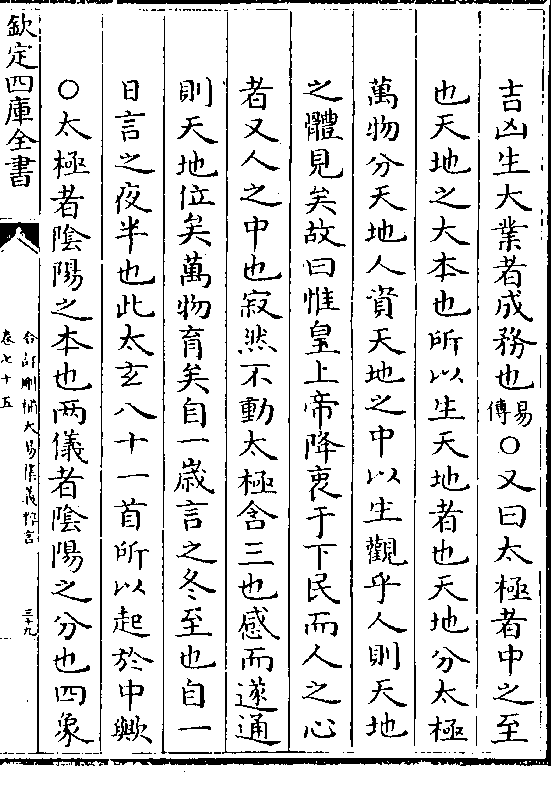 吉凶生大業者成務也易傳○又曰太極者中之至
也天地之大本也所以生天地者也天地分太極
萬物分天地人資天地之中以生觀乎人則天地
之體見矣故曰惟皇上帝降衷于下民而人之心
者又人之中也寂然不動太極含三也感而遂通
則天地位矣萬物育矣自一歲言之冬至也自一
日言之夜半也此太玄八十一首所以起於中歟
○太極者陰陽之本也兩儀者陰陽之分也四象
欽定四庫全書
合訂刪補大易集義粹言
卷七十五
三十九